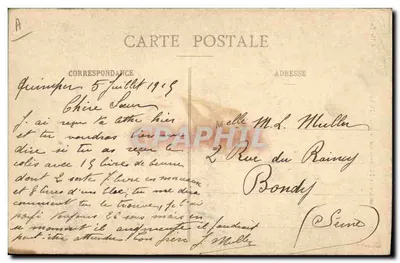 A
CARTE POSTALE
CORRESPONDANCE
ADRESSE
Quimper 5 Juillet 1915
Chère Sœur
J. ai reçu ta lettre hier
et tu voudras bien me
dire si tu as reçu le
colis avec 15 livre de beurre
dont 2 sorte 7 livre en morceau
et 8 livres d'un bloc, tu me diras
comment tu le trouve, je l'ai
payé toujours 26 sous mais en
ce moment il augmente il faudrait
peut être attendre ton frère J. Muller
Melle M. L. Muller
2 Rue du Raincy
Bondy
(Seine)
CPAPHIL